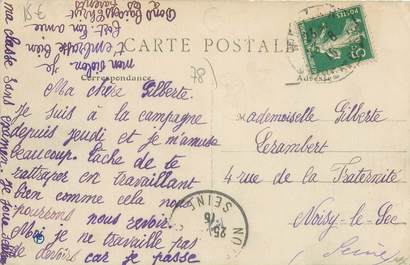 CARTE POSTALE
Correspondance
Adresse
Ma chère Gilberte.
Je suis à la campagne
depuis jeudi et je m'amuse
beaucoup. Tache de te
rattraper en travaillant
bien comme cela nous
pourrons nous revoir.
Moi je ne travaille pas
de devoirs car je passe
ma classe sans examen. Je joue
mon violon. Je
t'embrasse bien
fort ton amie
Mademoiselle Gilberte
Lerambert
4 rue de la Fraternité
Noisy-le-Sec
Seine
15 €
78
POSTES
5
SEINE
25